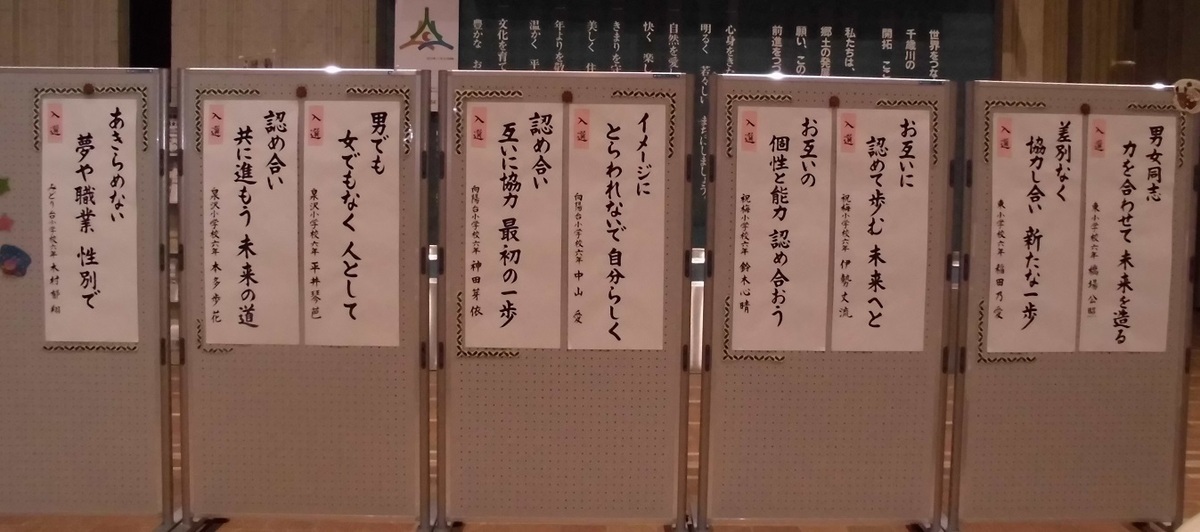 男女同志
力を合わせて 未来を造る
入選
東小学校六年
差別なく
協力し合い 新たな一歩
入選
東小学校六年 稲田乃愛
お互いに
認めて歩む 未来へと
入選
祝梅小学校六年 伊勢丈流
お互いの
個性と能力 認め合おう
入選
祝梅小学校六年 鈴木心晴
イメージに
とらわれないで 自分らしく
入選
向陽台小学校六年 中山 愛
認め合い
互いに協力 最初の一歩
入選
向陽台小学校六年 神田芽依
男でも
女でもなく 人として
入選
泉沢小学校六年 平井琴芭
認め合い
共に進もう 未来の道
入選
泉沢小学校六年 本多歩花
あきらめない
夢や職業 性別で
入選
みどり台小学校六年 木村
世界をつな
千歳川の
開拓
私たちは、
郷土の発
願い、この
前進をつ
心身をきた
明るく 若々しい まちにしましょう。
一 自然を愛
快く 楽し
一 きまりを守
美しく 住
一 年よりを敬
温かく 平
一 文化を育て
豊かな